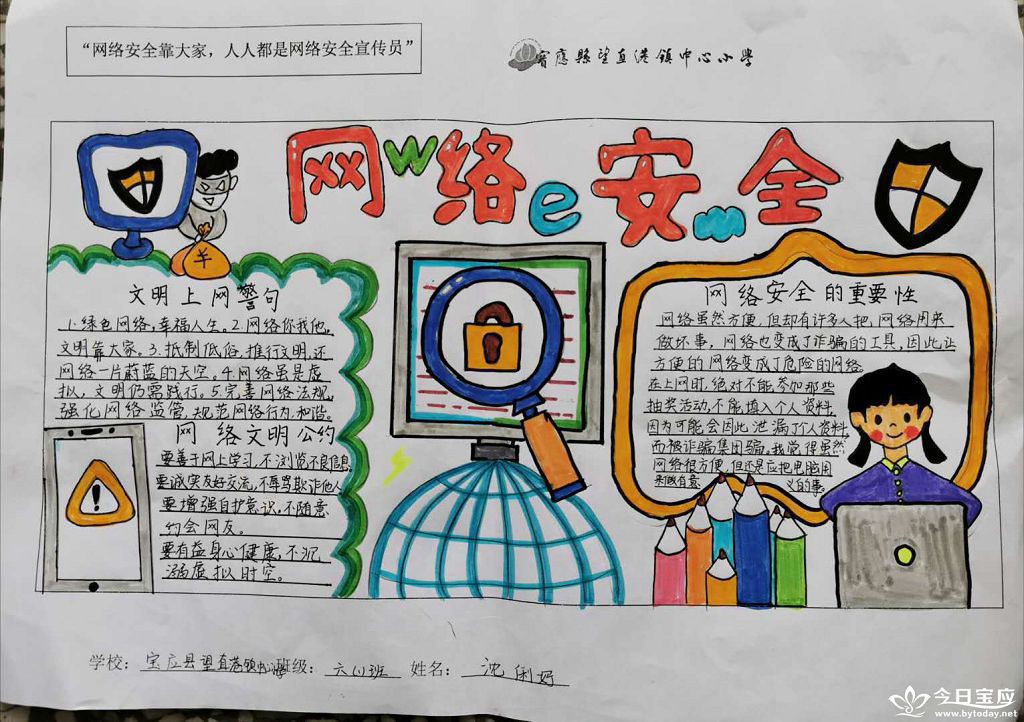 “网络安全靠大家，人人都是网络安全宣传员”
寳應縣望直港镇中心小學
网w络e安m全
文明上网警句
1.绿色网络，幸福人生。2.网络你我他，
文明靠大家。3.抵制低俗，推行文明，还
网络一片蔚蓝的天空。4.网络虽是虚
拟，文明仍需践行。5.完善网络法规，
强化网络监管，规范网络行为和谐。
网络文明公约
要善于网上学习，不浏览不良信息
要诚实友好交流，不辱骂欺诈他人
要增强自护意识，不随意
约会网友。
要有益身心健康，不沉
溺虚拟时空。
网络安全的重要性
网络虽然方便，但却有许多人把，网络用来
做坏事，网络也变成了诈骗的工具，因此让
方便的网络变成了危险的网络。
在上网时，绝对不能参加那些
抽奖活动，不能填入个人资料，
因为可能会因此泄漏了个人资料，
而被诈骗集团骗。我觉得虽然
网络很方便，但还是应把电脑用
来做有意义的事。
学校：宝应县望直港镇中心小学 班级：六(1)班 姓名：沈俐
今日宝应
www.bytoday.net